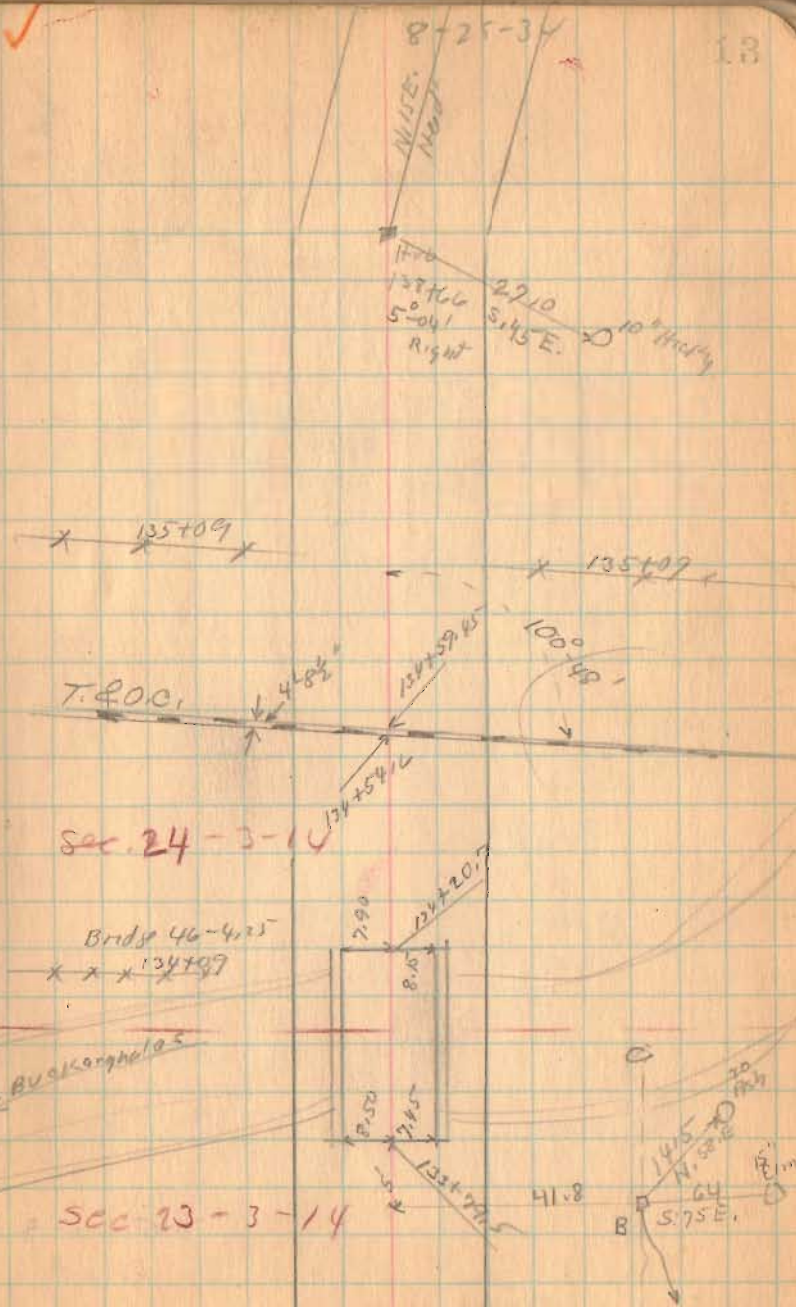 8-25-34
13
N. 15 E.
Hub
138+66
5°-04'
Right
27.0
S. 45 E.
10" Hickory
135+09
135+09
134+59.45
100°-48'
4'-8½"
T. & O.C.
134+54.6
Sec. 24-3-14
134+20.7
7.90
8.15
Bridge 46-4.25
134+09
Buckonghalas
8.50
7.45
133+74.5
5
Sec 23-3-14
41.8
B
C
20 Ash
14.5
N. 58 E.
15" Elm
64
S. 75 E.